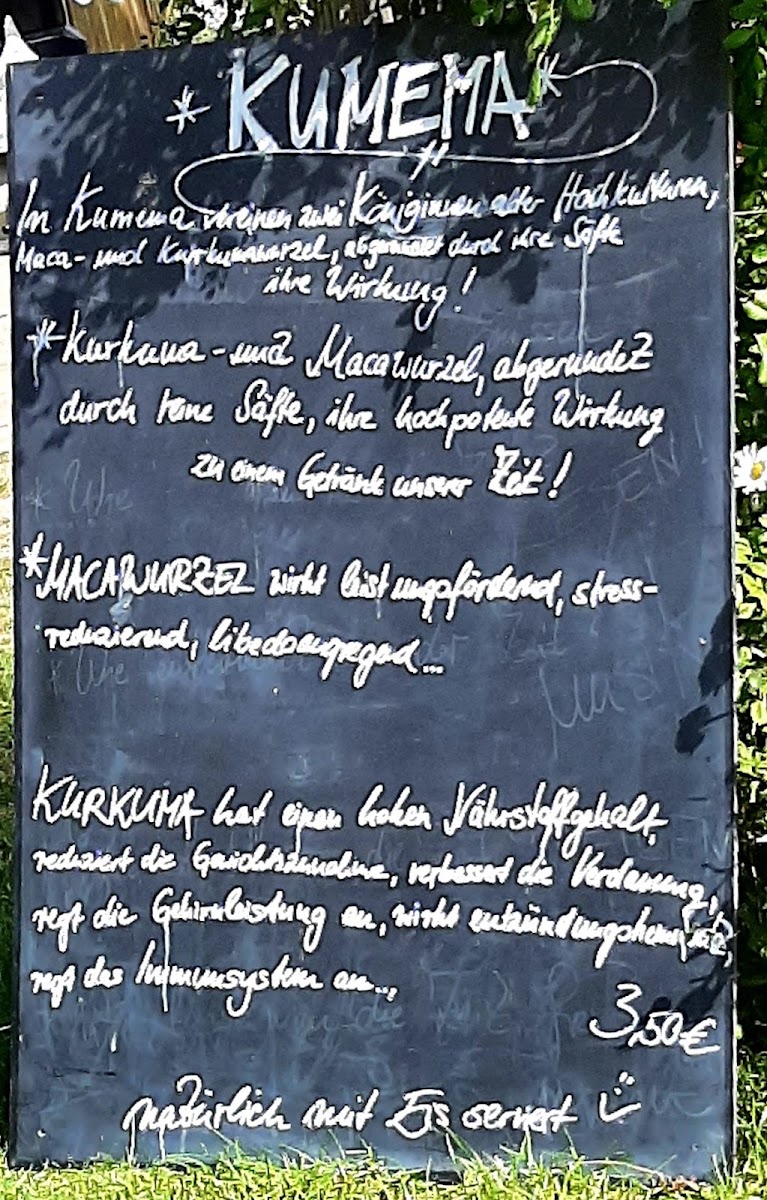 * KUMEMA *
In Kumema vereinen zwei Königinnen alter Hochkulturen,
Maca- und Kurkumawurzel, abgerundet durch ihre Säfte
ihre Wirkung!
* Kurkuma- und Macawurzel, abgerundet
durch feine Säfte, ihre hochpotente Wirkung
zu einem Getränk unserer Zeit!
* MACAWURZEL wirkt leistungsfördernd, stress-
reduzierend, libedoanregend...
KURKUMA hat einen hohen Nährstoffgehalt,
reduziert die Gewichtszunahme, verbessert die Verdauung,
regt die Gehirnleistung an, wirkt entzündungshemmend,
regt das Immunsystem an...,
3,50€
natürlich mit Eis serviert